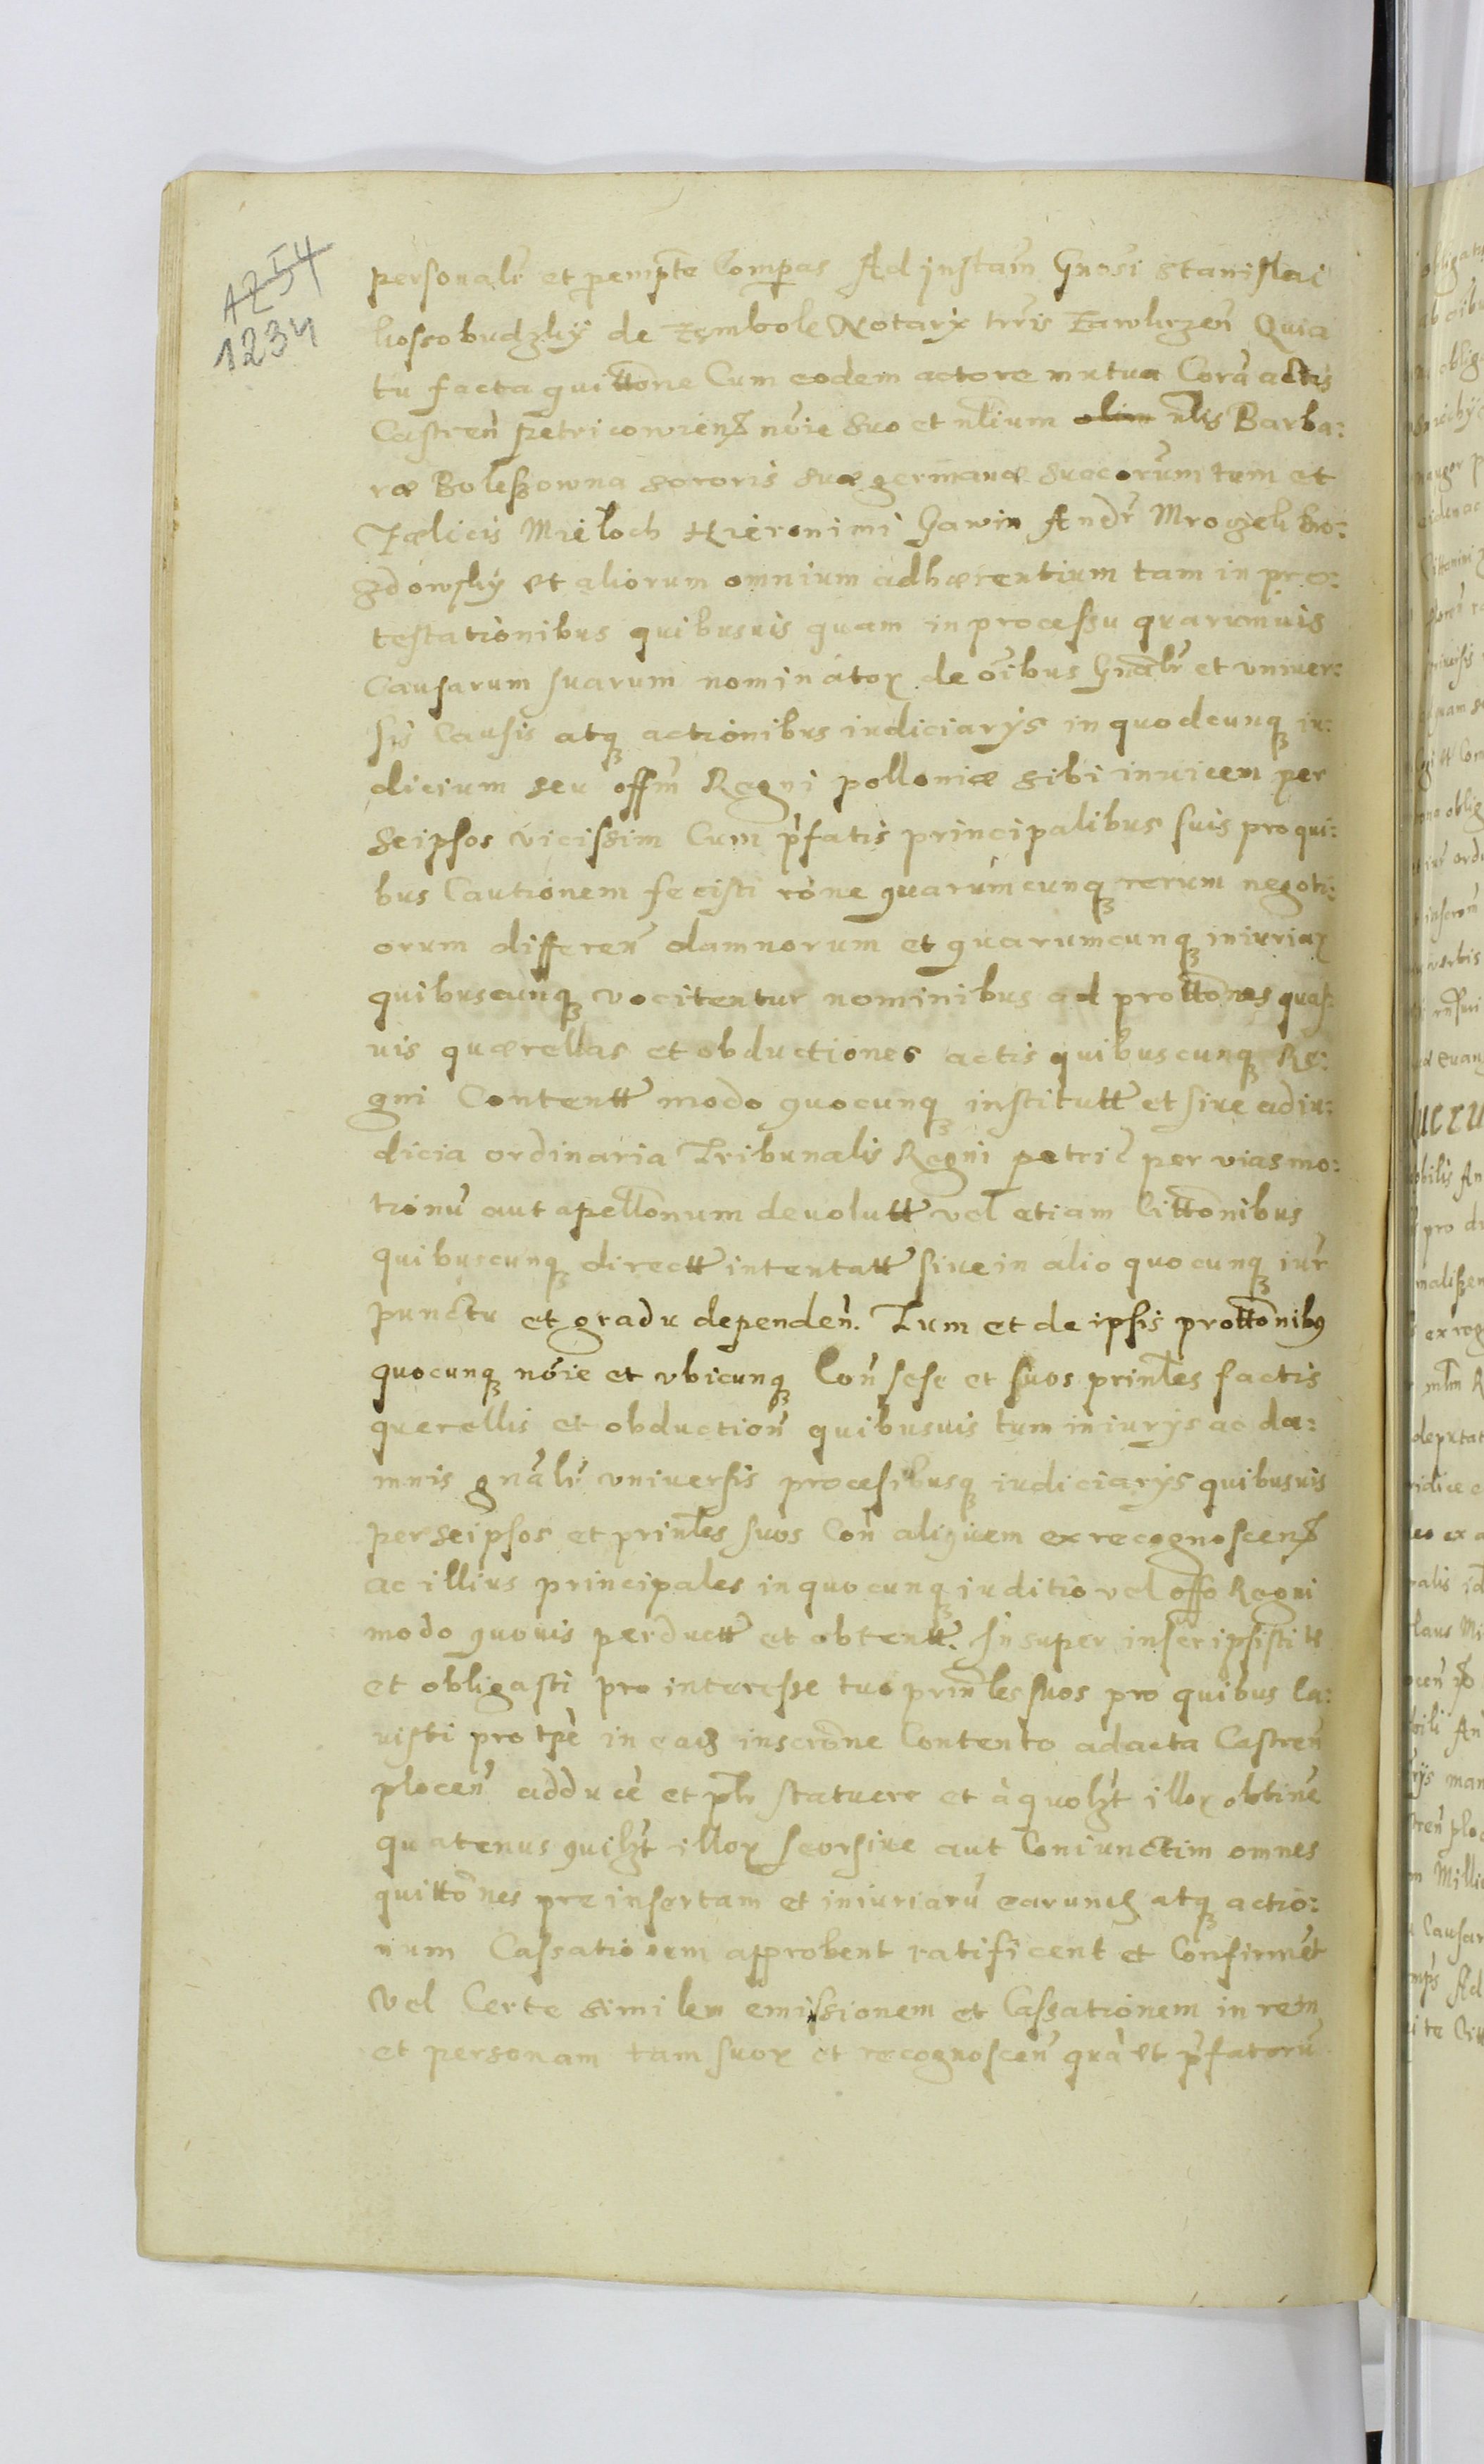 1254
1234
personalr et pempte Comparas Ad jnstam Gnosi Stanislai
kossobudzky de zembole Notarÿ trris Zawkrzen Quia
tu facta quittone Cum eodem actore mutua Cora actis
Castren petricowiens noie suo et nlium olim nlis Barba:
ræ Boleszowna sororis suæ germanæ suecorum tum et
Fælicis Mieloch Hieronimi Gawin Andr
gdowsky et aliorum omnium adhærentium tam in pro:
testationibus quibusuis quam in processu quarumuis
Causarum suarum nominator de oibus Gnalr et vniuer:
sis Causis atq actionibus iudiciarÿs in quodcunq iu:
dicium seu offm Regni polloniæ sibi inuicem per
seipsos vicissim Cum pfatis principalibus suis pro qui:
bus Cautionem fecisti rone quarumcunq rerum negoti:
orum differen damnorum et quarumcunq iniuriar
quibuscunq vocitentur nominibus ad prottones quas
uis quærellas et obductiones actis quibuscunq Re:
gni Contentt modo quocunq institutt et siue ad iu:
dicia ordinaria Tribunalis Regni petric per vias mo:
tionu aut apellonum deuolutt vel etiam Cittonibus
quibuscunq directt intentatt siue in alio quocunq iur
punctu et gradu dependen. Tum et de ipsis prottonibus
quocunq noie et vbicunq Con sese et suos prinles factis
querellis et obduction quibusuis tum iniurÿs ac da:
mnis gnalr vniuersis procesibusq iudiciarÿs quibusuis
per seipsos et prinles suos Con aliquem ex recognoscens
ac illius principales in quocunq iuditio vel offo Regni
modo quouis perductt et obtentt. Insuper inscripsisti te
et obligasti pro interesse tuo prinles suos pro quibus Ca:
uisti pro tpe in ead inscrone Contento ad acta Castren
plocen adduce et plr statuere et à quolzt illor obtine
quatenus quilzt illor seorsiue aut Coniunctim omnes
quittones preinsertam et iniuriaru earund atq actio:
num Cassationem approbent ratificent et Confirmet
vel Certe similem emissionem et Cassationem in rem
et personam tam suor et recognoscen qua et pfatoru